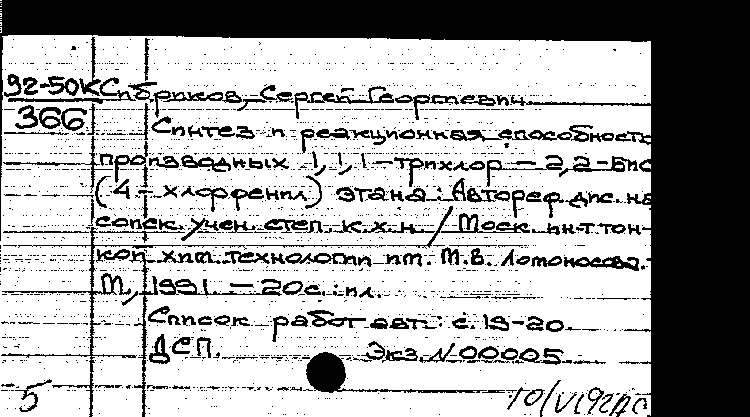 92-50К Сибриков, Сергей Георгиевич.
366 Синтез и реакционная способность
производных 1,1,1-трихлор-2,2-бис
(4-хлорфенил) этана: Автореф. дис. на
соиск. учен. степ. к.х.н. / Моск. ин-т тон-
кой хим. технологии им. М.В. Ломоносова.-
М., 1991. - 20с.: ил.
Список работ авт.: с. 19-20.
ДСП. Экз. N 00005
5 10/VI92